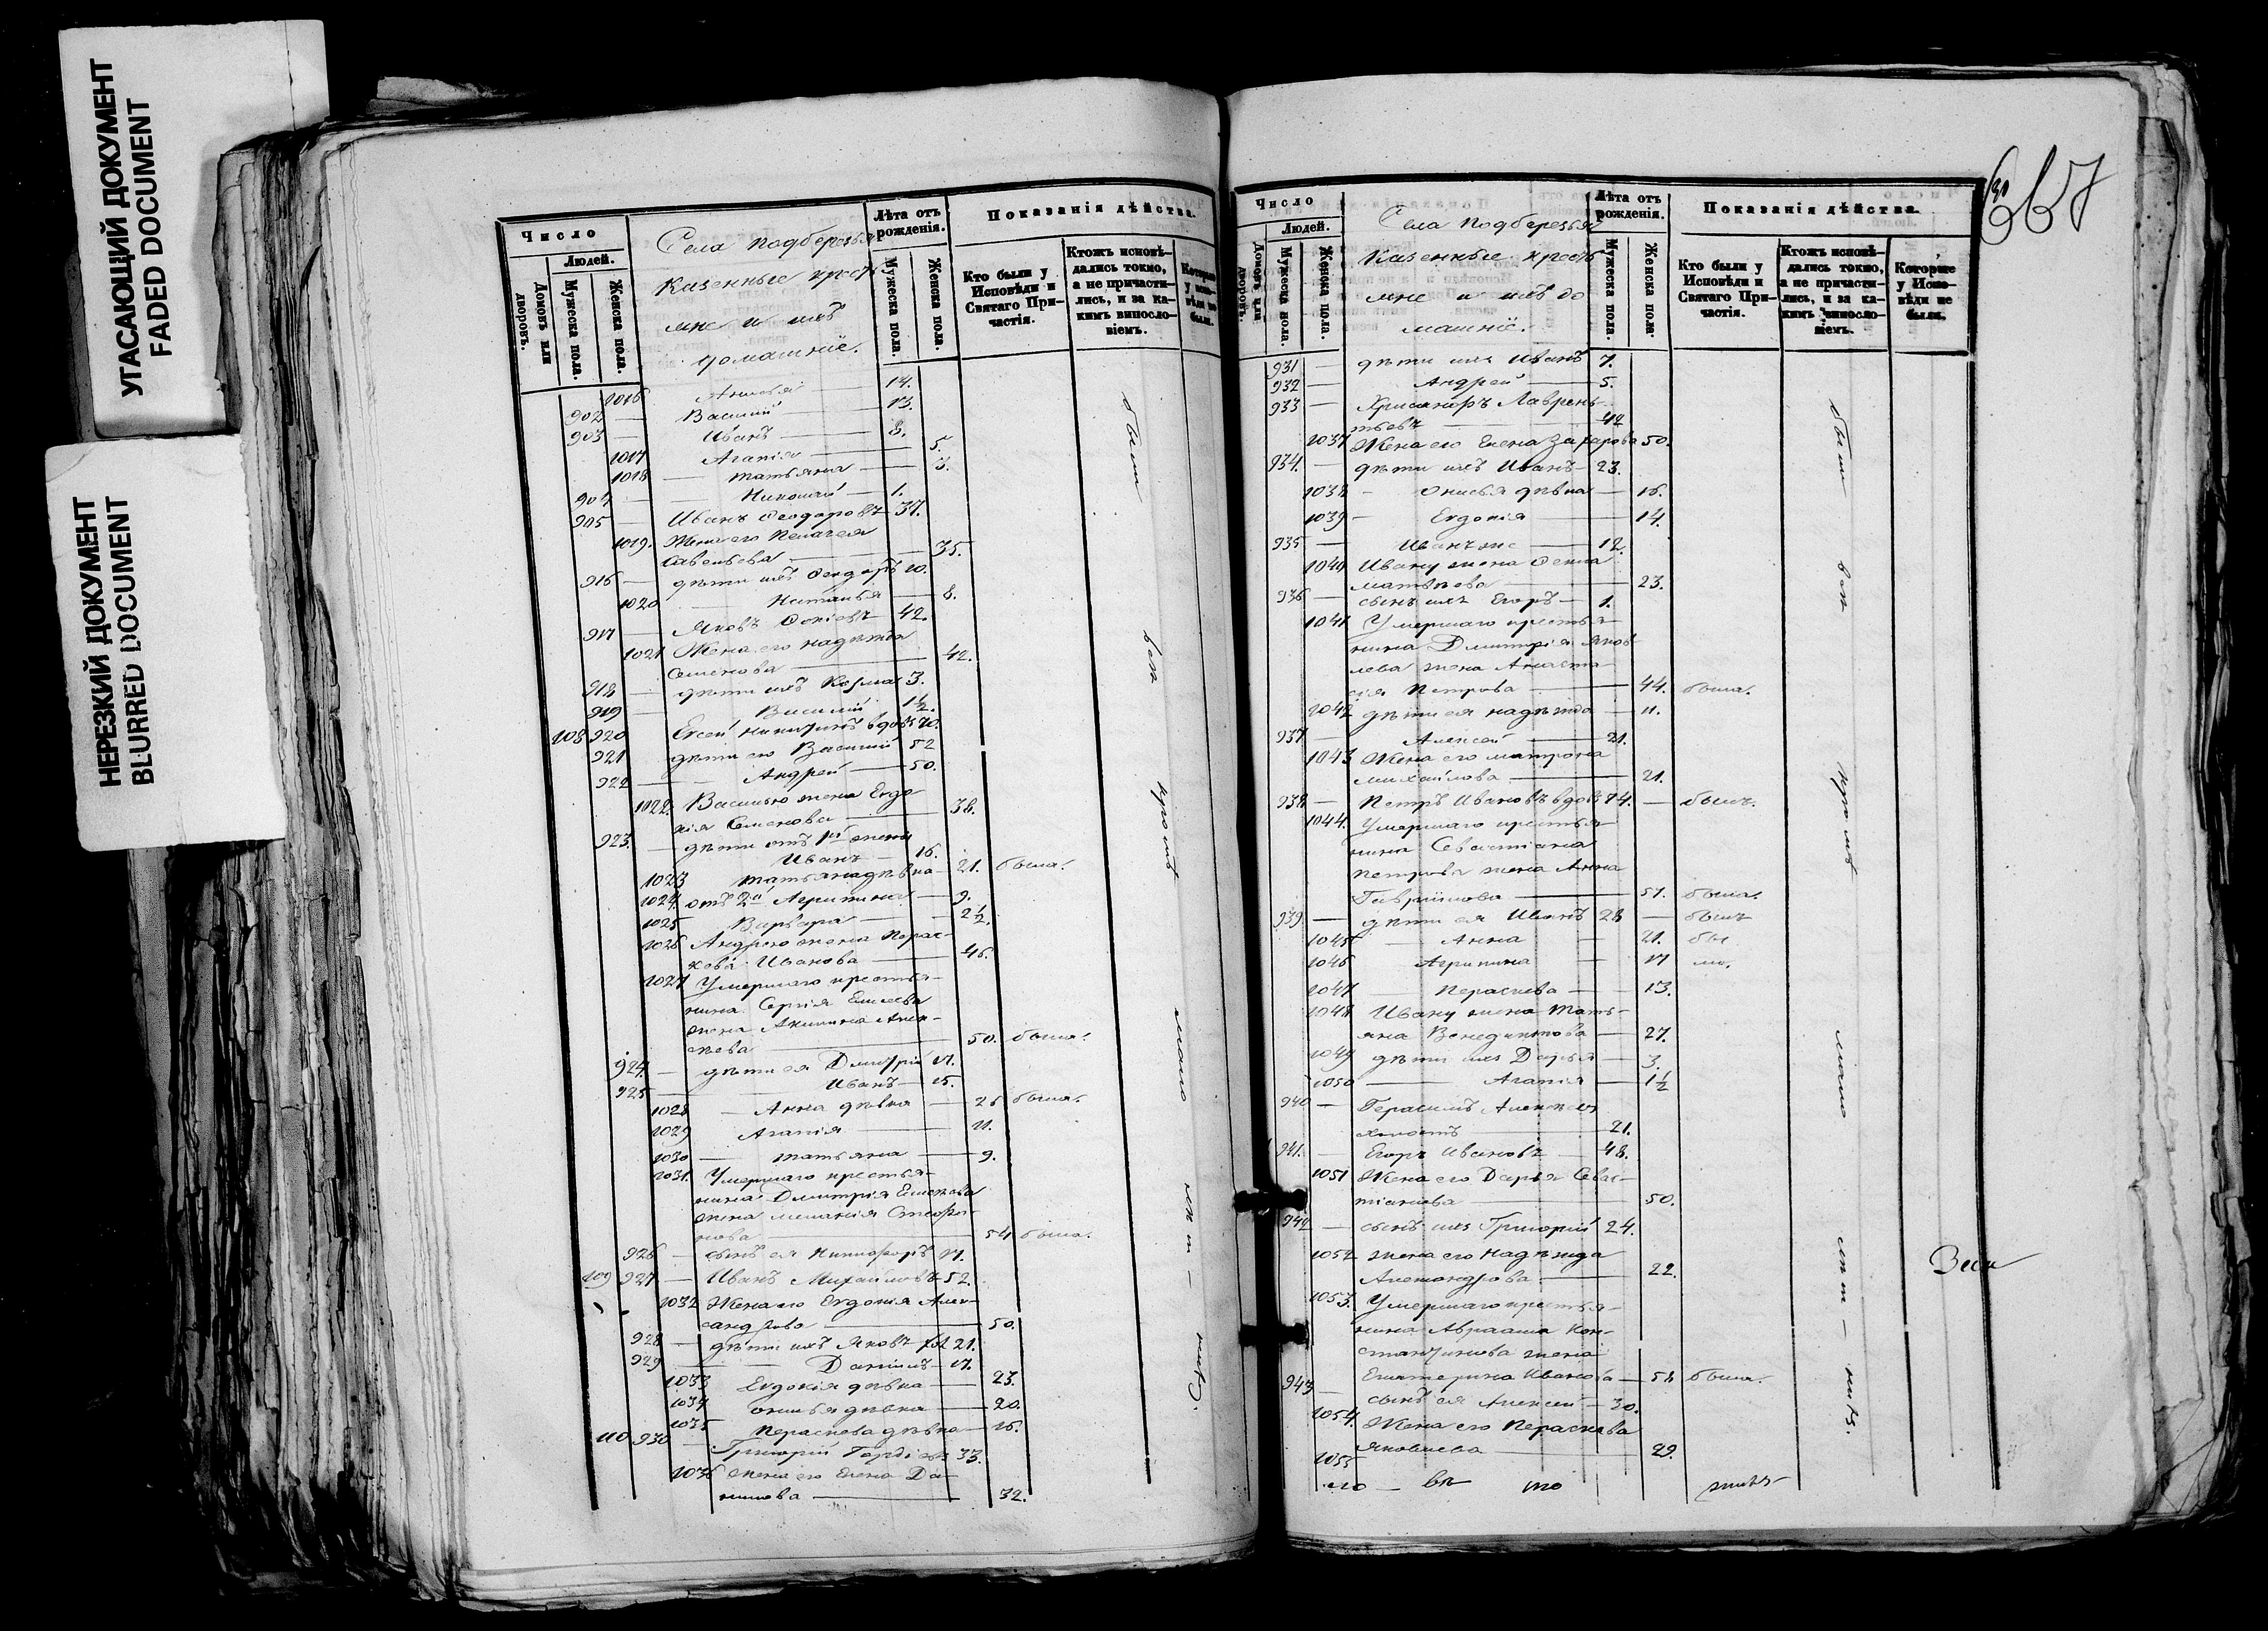 УГАСАЮЩИЙ ДОКУМЕНТ
FADED DOCUMENT
НЕРЕЗКИЙ ДОКУМЕНТ
BLURRED DOCUMENT
Число
Людей.
Домовъ или дворовъ.
Мужеска пола.
Женска пола.
Села Подберезья
казенные кресть
яне и ихъ
домашніе.
Лѣта отъ рожденія.
Мужеска пола.
Женска пола.
Показанія дѣйства.
Кто были у Исповѣди и Святаго Причастія.
Ктожъ исповѣдались токмо, а не причастились, и за какимъ винословіемъ.
Которые у исповѣди не были.
1016 14.
902 — Василій — 13.
903 — Иванъ — 8.
1017 Агапія — 5.
1018 — Татьяна — 3.
904 — Николай — 1.
905 — Иванъ Ѳеодоровъ 37.
1019. Жена его Пелагея
Савельева — 35.
916 — дѣти ихъ Ѳеодоръ 10.
1020 Наталья — 8.
917 — Яковъ 42.
1021 Жена его Надежда
Семенова — 42.
918 — дѣти ихъ Козма 3.
919 Василій 1½.
108 920 вдовъ 70.
921 дѣти его Василій 52
922 — Андрей — 50.
1022. Василью жена Евдо
кія Семенова — 38.
923. — дѣти отъ 1й жены
Иванъ — 16.
1023 Татьяна дѣвка — 21. была.
1024. отъ 2й Агрипина — 9.
1025 Варвара — 2½.
1026 Андрею жена Парас-
кева Иванова — 46.
1027 Умершаго крестья-
нина Сергія Елисеева
жена Акилина Алек-
сѣева — 50. была.
924. — дѣти ея Дмитрій 17.
925 — Иванъ — 15.
1028 — Анна дѣвка — 26 была.
1029 Агапія — 11.
1030 — Татьяна — 9.
1031. Умершаго крестья-
нина Дмитрія
жена Меланія
нова — 54 была.
926 — сынъ ея Никифоръ 17.
109 927 — Иванъ Михайловъ 52.
1032 Жена его Евдокія Алек-
сандрова — 50.
928 — дѣти ихъ Яковъ 21.
929 — Даніилъ — 17.
1033 Евдокія дѣвка — 23.
1034 Онисья дѣвка — 20.
1035 Параскева дѣвка — 16.
110 930 — Григорій Гордѣевъ 33.
1036 жена его Елена Да-
нилова — 32.
были
вси
кромѣ
мало
лѣт —
нихъ.
667
Число
Людей.
Домовъ или дворовъ.
Мужеска пола.
Женска пола.
Села Подберезья
казенные кресть
яне и ихъ до
машніе.
Лѣта отъ рожденія.
Мужеска пола.
Женска пола.
Показанія дѣйства.
Кто были у Исповѣди и Святаго Причастія.
Ктожъ исповѣдались токмо, а не причастились, и за какимъ винословіемъ.
Которые у Исповѣди не были.
931 — дѣти ихъ Иванъ 7.
932 — Андрей — 5.
933 — Хрисанѳъ Лаврень-
тьевъ — 42
1037 Жена его Елена Захарова 50.
934. — дѣти ихъ Иванъ — 23.
1038 — Онисья дѣвка — 16.
1039 — Евдокія — 14.
935 — Иванъ же — 12.
1040 Ивану жена Ѳекла
Матвѣева — 23.
936 — сынъ ихъ Егоръ — 1.
1041 Умершаго крестья-
нина Дмитрія Яков
лева жена Анаста
сія Петрова — 44. была.
1042 дѣти ея Надежда — 11.
937 — Алексей — 21.
1043 Жена его Матрона
Михайлова — 21.
938 — Петръ Ивановъ вдовъ 74. — былъ.
1044. Умершаго крестья-
нина Севастіана
Петрова жена Анна
Гавриилова — 51. была.
939 — дѣти ея Иванъ 28 — былъ
1045 — Анна — 21. бы
1046 Агрипина — 17 ли.
1047 — Параскева — 13.
1048 Ивану жена Тать-
яна Венедиктова — 27.
1049 дѣти ихъ Дарья — 3.
1050 — Агапія — 1½
940 — Герасимъ Алексѣевъ
холостъ — 21.
941. — Егоръ Ивановъ — 48.
1051 Жена его Дарья Севас-
тіанова — 50.
942 — сынъ ихъ Григорій 24.
1052 жена его Надежда
Александрова — 22.
1053. Умершаго крестья-
нина Авраама Кон-
стантинова жена
Екатерина Иванова — 58 была.
943 — сынъ ея Алексей — 30.
1054. Жена его Параскева
Яковлева — 29.
1055
были
вси
кромѣ
мало
лѣт —
нихъ.